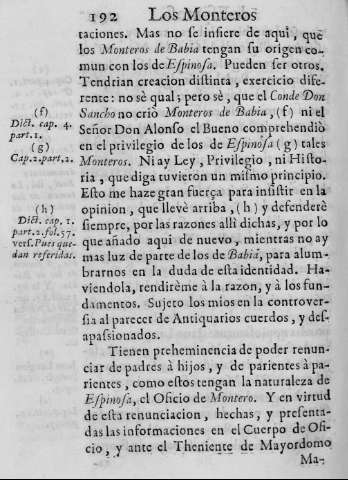 192 Los Monteros
taciones. Mas no se infiere de aqui, que
los Monteros de Babia tengan su origen co-
mun con los de Espinosa. Pueden ser otros.
Tendrian creacion distinta, exercicio dife-
rente: no sè qual; pero sè, que el Conde Don
Sancho no criò Monteros de Babia, (f) ni el
Señor Don Alonso el Bueno comprehendiò
en el privilegio de los de Espinosa (g) tales
Monteros. Ni ay Ley, Privilegio, ni Histo-
ria, que diga tuvieron un mismo principio.
Esto me haze gran fuerça para insistir en la
opinion, que llevè arriba, (h) y defenderè
siempre, por las razones alli dichas, y por lo
que añado aqui de nuevo, mientras no ay
mas luz de parte de los de Babia, para alum-
brarnos en la duda de esta identidad. Ha-
viendola, rendirème à la razon, y à los fun-
damentos. Sujeto los mios en la controver-
sia al parecer de Antiquarios cuerdos, y des-
apassionados.
Tienen preheminencia de poder renun-
ciar de padres à hijos, y de parientes à pa-
rientes, como estos tengan la naturaleza de
Espinosa, el Oficio de Montero. Y en virtud
de esta renunciacion, hechas, y presenta-
das las informaciones en el Cuerpo de Ofi-
cio, y ante el Theniente de Mayordomo
Ma-
(f)
Dict. cap. 4.
part. 1.
(g)
Cap. 2. part. 2.
(h)
Dict. cap. 1.
part. 2. fol. 57.
vers. Pues que-
dan referidas.